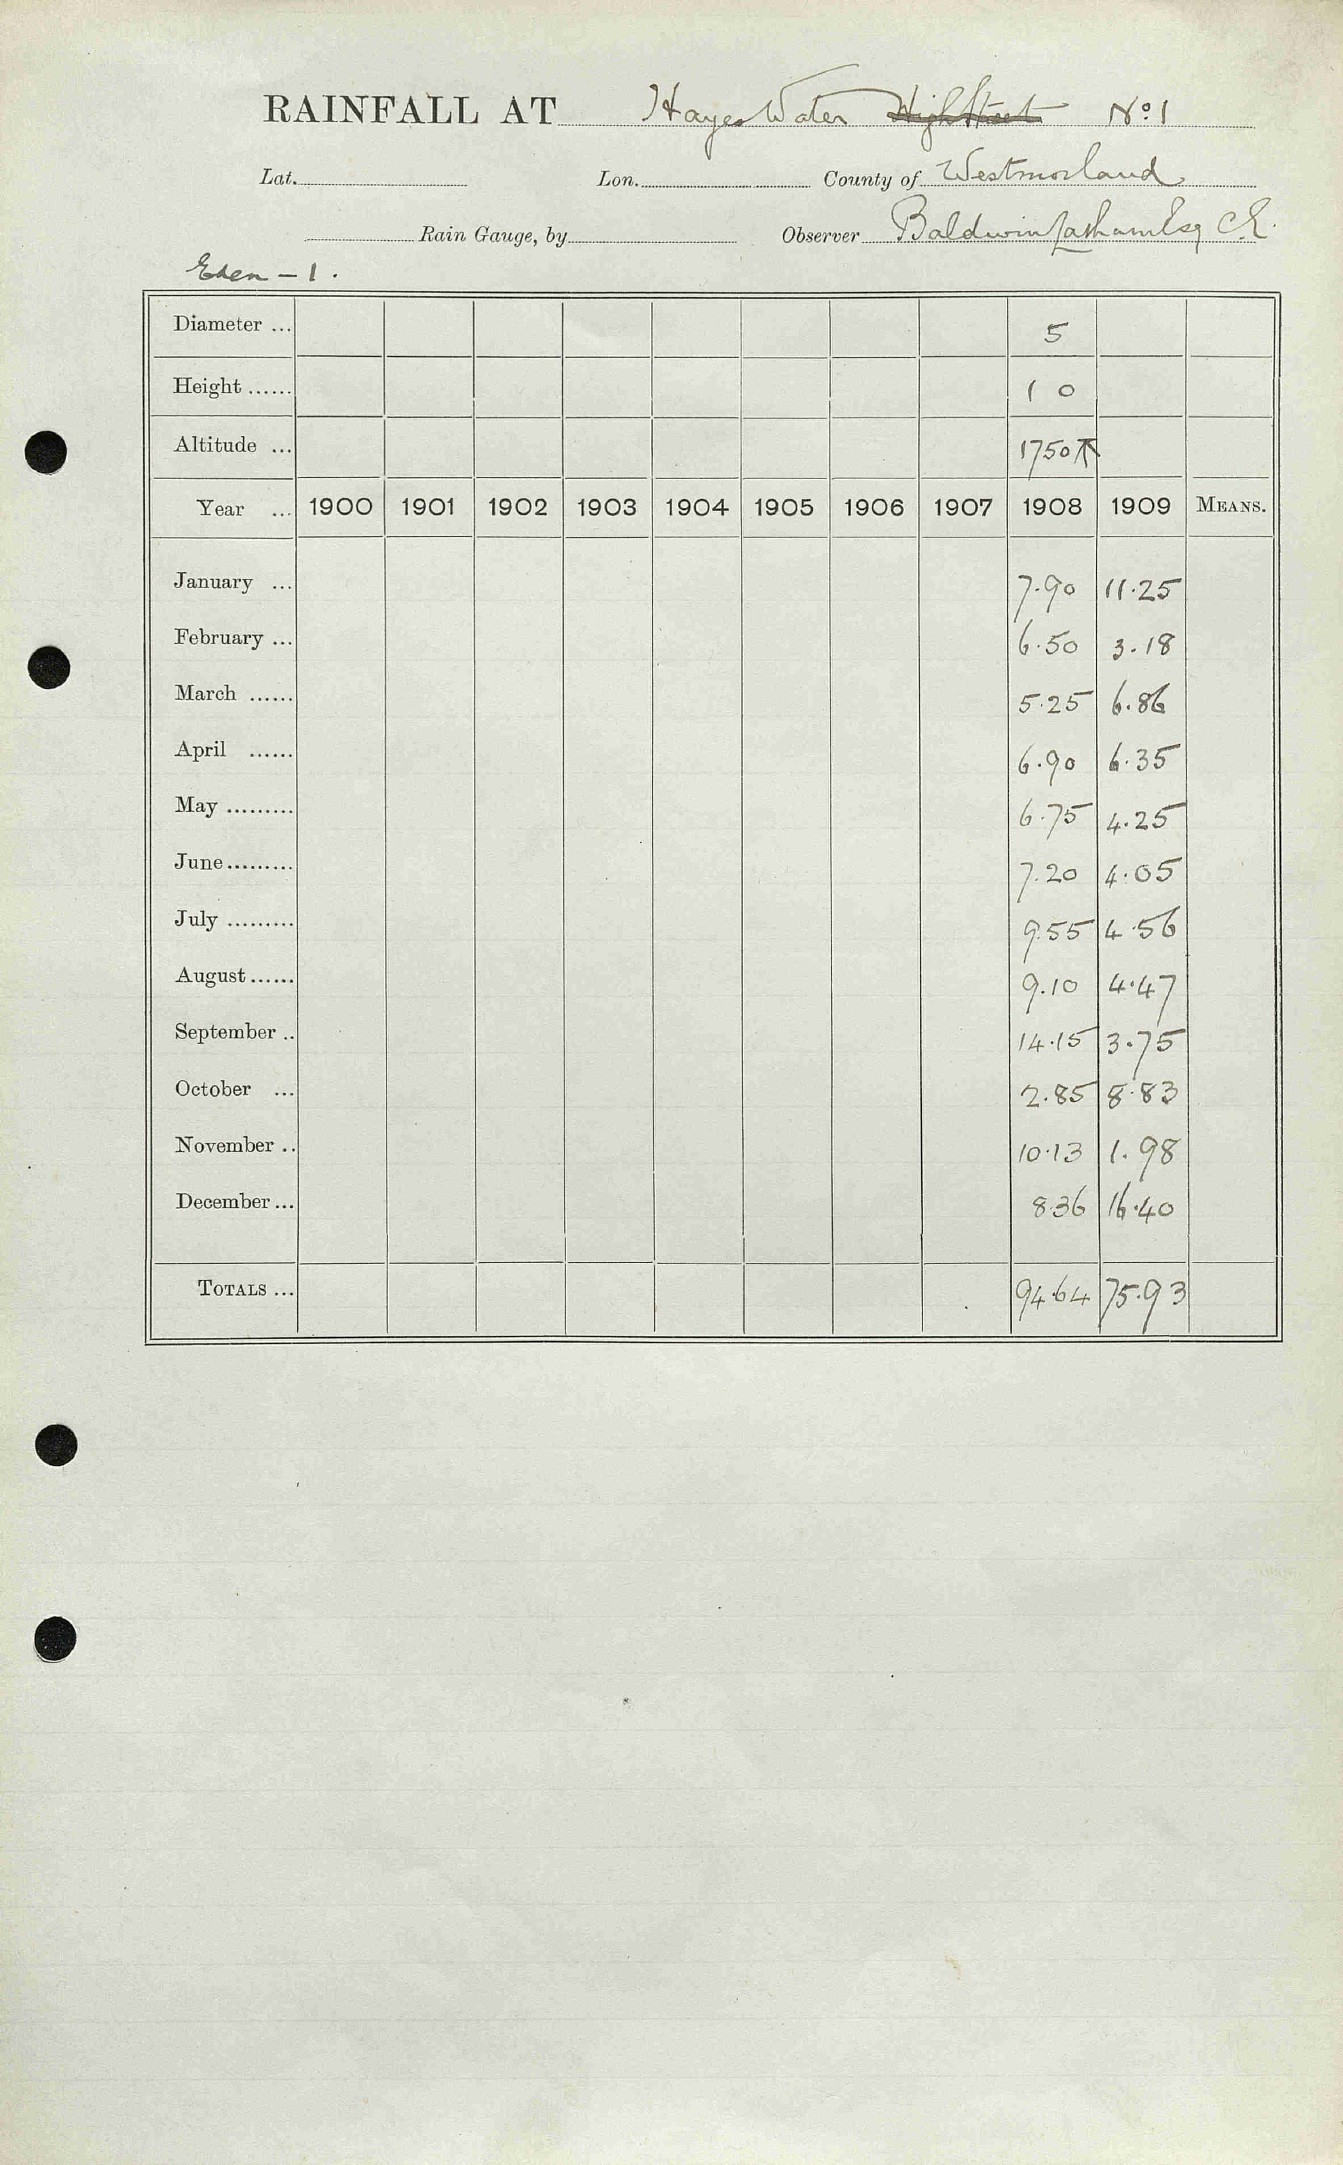 RAINFALL AT Hayes Water High Street No 1
Lat. Lon. County of Westmorland
Rain Gauge, by Observer Baldwin Latham Esq C.E.
Eden - 1.
Diameter ... 5
Height ...... 1 0
Altitude ... 1750
Year ... 1900 1901 1902 1903 1904 1905 1906 1907 1908 1909 MEANS.
January ... 7.90 11.25
February ... 6.50 3.18
March ...... 5.25 6.86
April ...... 6.90 6.35
May ......... 6.75 4.25
June ......... 7.20 4.05
July ......... 9.55 4.56
August ...... 9.10 4.47
September .. 14.15 3.75
October ... 2.85 8.83
November .. 10.13 1.98
December ... 8.36 16.40
TOTALS ... 94.64 75.93